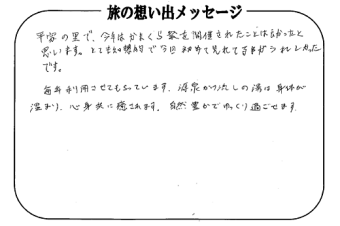 旅の想い出メッセージ
平家の里で、今年はかまくら祭を開催されたことは良かったと
思います。とても幻想的で今回初めて見れて
です。
毎年利用させてもらっています。源泉かけ流しの湯は身体が
温まり、心身共に癒されます。自然豊かでゆっくり過ごせます。